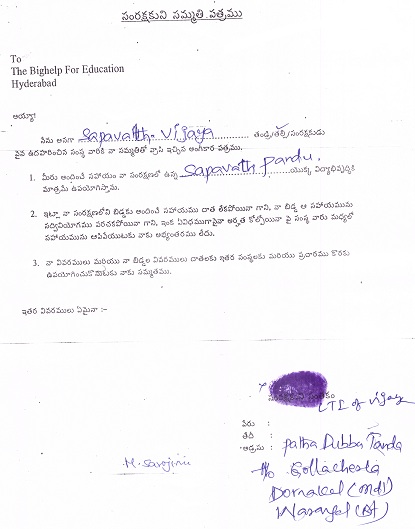 సంరక్షకుని సమ్మతి పత్రము
To
The Bighelp For Education
Hyderabad
అయ్యా!
నేను అనగా Sapavath. Vijaya తండ్రి/తల్లి/సంరక్షకుడు
పైన ఉదహరించిన సంస్థ వారికి నా సమ్మతితో వ్రాసి ఇచ్చిన అంగీకార పత్రము.
1. మీరు అందించే సహాయం నా సంరక్షణలో ఉన్న Sapavath pandu. యొక్క విద్యాభివృద్ధికి
మాత్రమే ఉపయోగిస్తాను.
2. ఇట్లా నా సంరక్షణలోని బిడ్డకు అందించే సహాయము దాత లేకపోయినా గాని, నా బిడ్డ ఆ సహాయమును
సద్వినియోగము పరచకపోయినా గాని, ఇంక ఏవిధముగానైనా అర్హత కోల్పోయినా పై సంస్థ వారు మధ్యలో
సహాయమును ఆపివేయుటకు నాకు అభ్యంతరము లేదు.
3. నా వివరములు మరియు నా బిడ్డల వివరములు దాతలకు ఇతర సంస్థలకు మరియు ప్రచారము కొరకు
ఉపయోగించుకొనుటకు నాకు సమ్మతము.
ఇతర వివరములు ఏమైనా :-
LTI of Vijaya
పేరు :
తేదీ :
అడ్రసు : patha Dubba Tanda
H/o Gollacherla
Dornakal (Mdl)
Warangal (Dt)
M. Sarojini